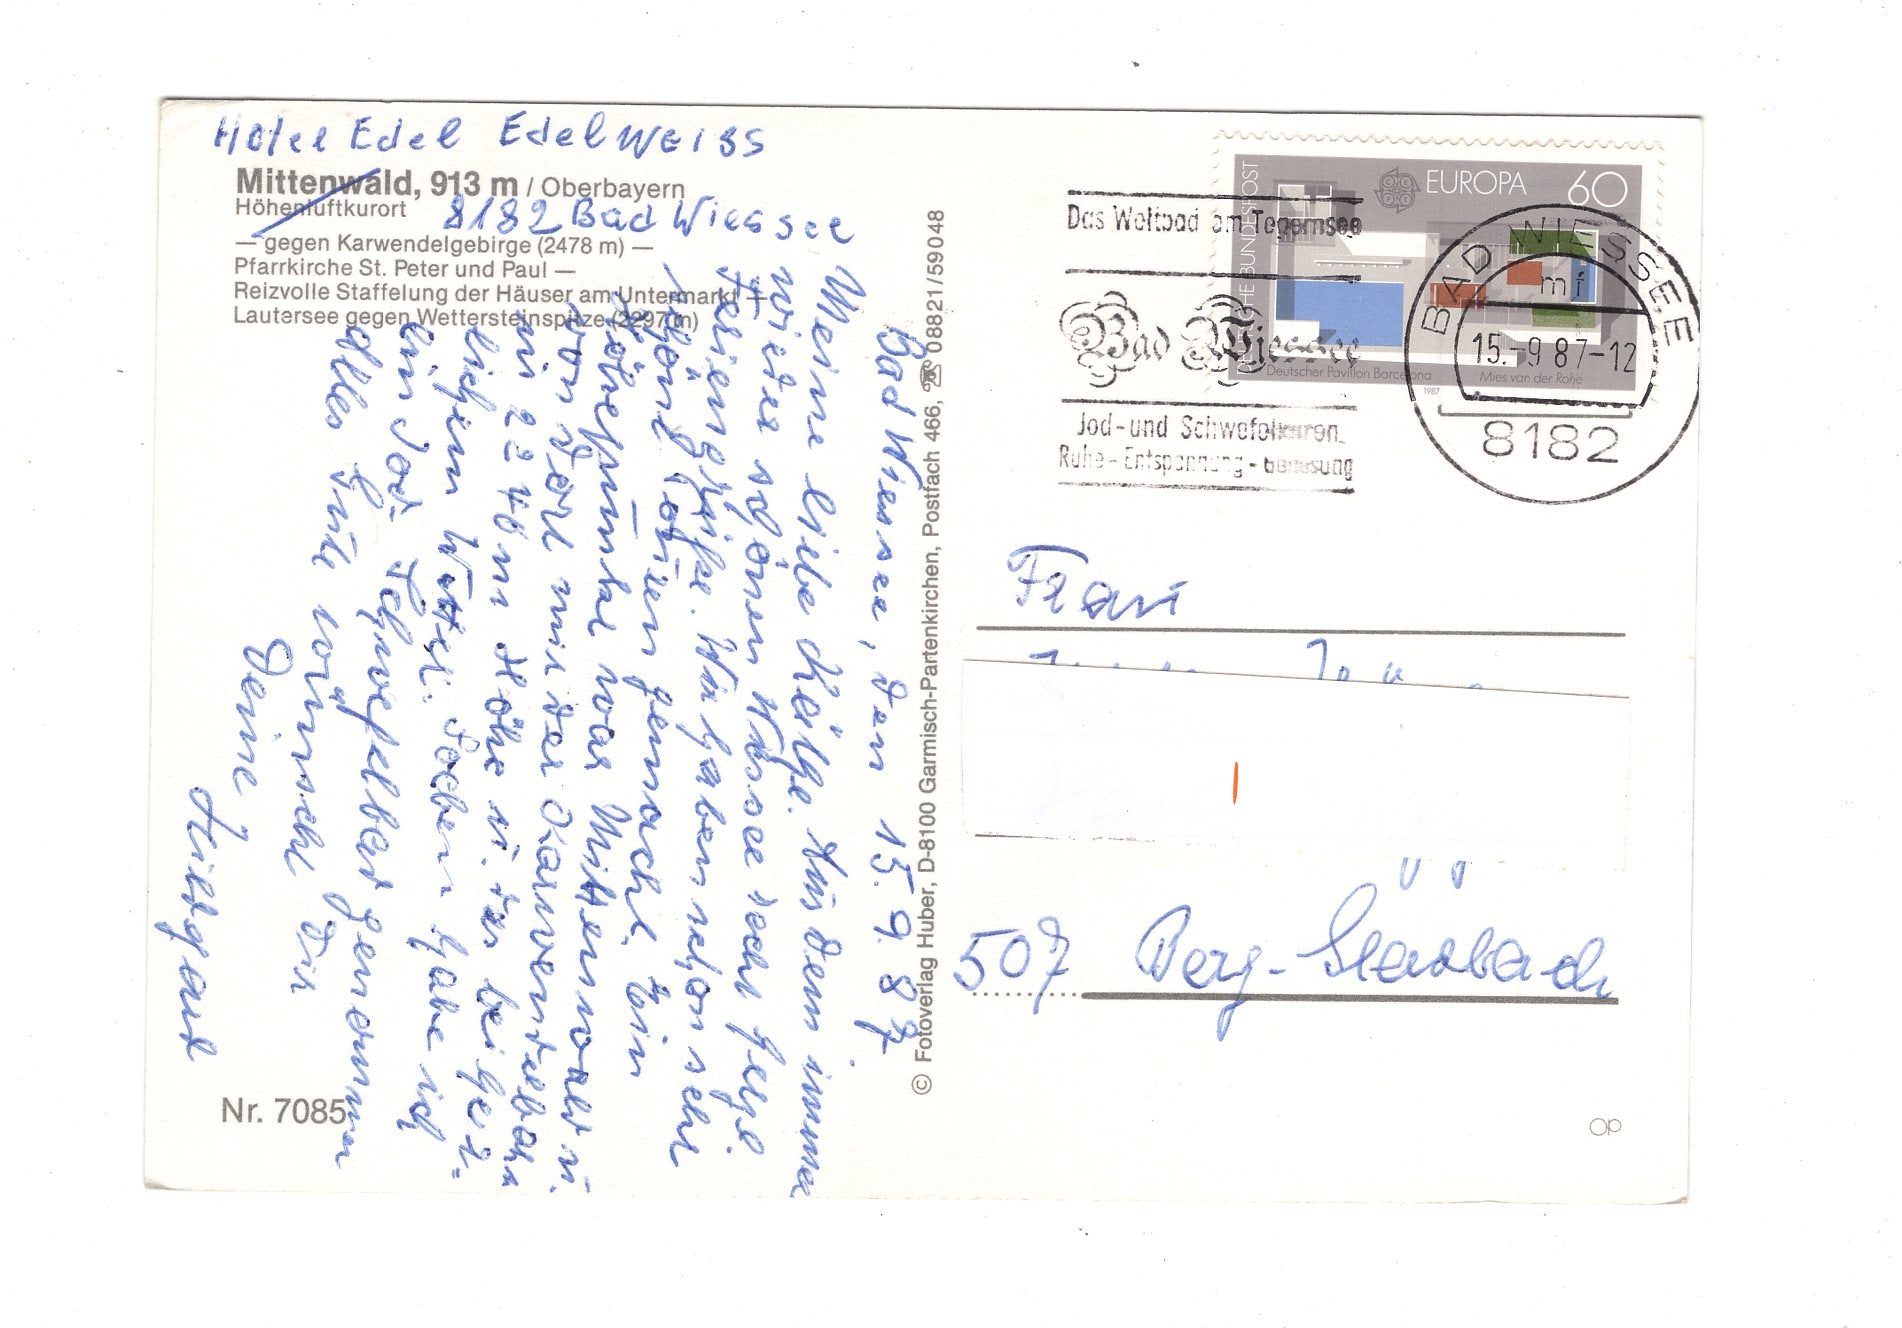 Hotel Edel Edelweiss
Mittenwald, 913 m / Oberbayern
Höhenluftkurort
8182 Bad Wiessee
— gegen Karwendelgebirge (2478 m) —
Pfarrkirche St. Peter und Paul —
Reizvolle Staffelung der Häuser am Untermarkt —
Lautersee gegen Wettersteinspitze (2297 m)
Bad Wiessee, den 15.9.87
Meine liebe Käthe. Aus dem immer
wieder schönen Wiessee recht herzl.
Feriengrüße. Wir haben schon sehr
schöne Touren gemacht. Ein
Höhepunkt war Mittenwald u.
von dort mit der Karwendelbahn
in 2240 m Höhe u. das bei herr-
lichem Wetter. Soeben habe ich
ein Jod-Schwefelbad genommen
Alles Gute wünscht Dir
Deine
Hildgard
Nr. 7085
© Fotoverlag Huber, D-8100 Garmisch-Partenkirchen, Postfach 466, ☎ 08821/59048
DEUTSCHE BUNDESPOST
CEPT
EUROPA 60
Deutscher Pavillon Barcelona
Mies van der Rohe
1987
Das Weltbad am Tegernsee
Bad Wiessee
Jod- und Schwefelkuren
Ruhe - Entspannung - Genesung
BAD WIESSEE
mf
15.-9 87-12
8182
Frau
507 Berg-Gladbach